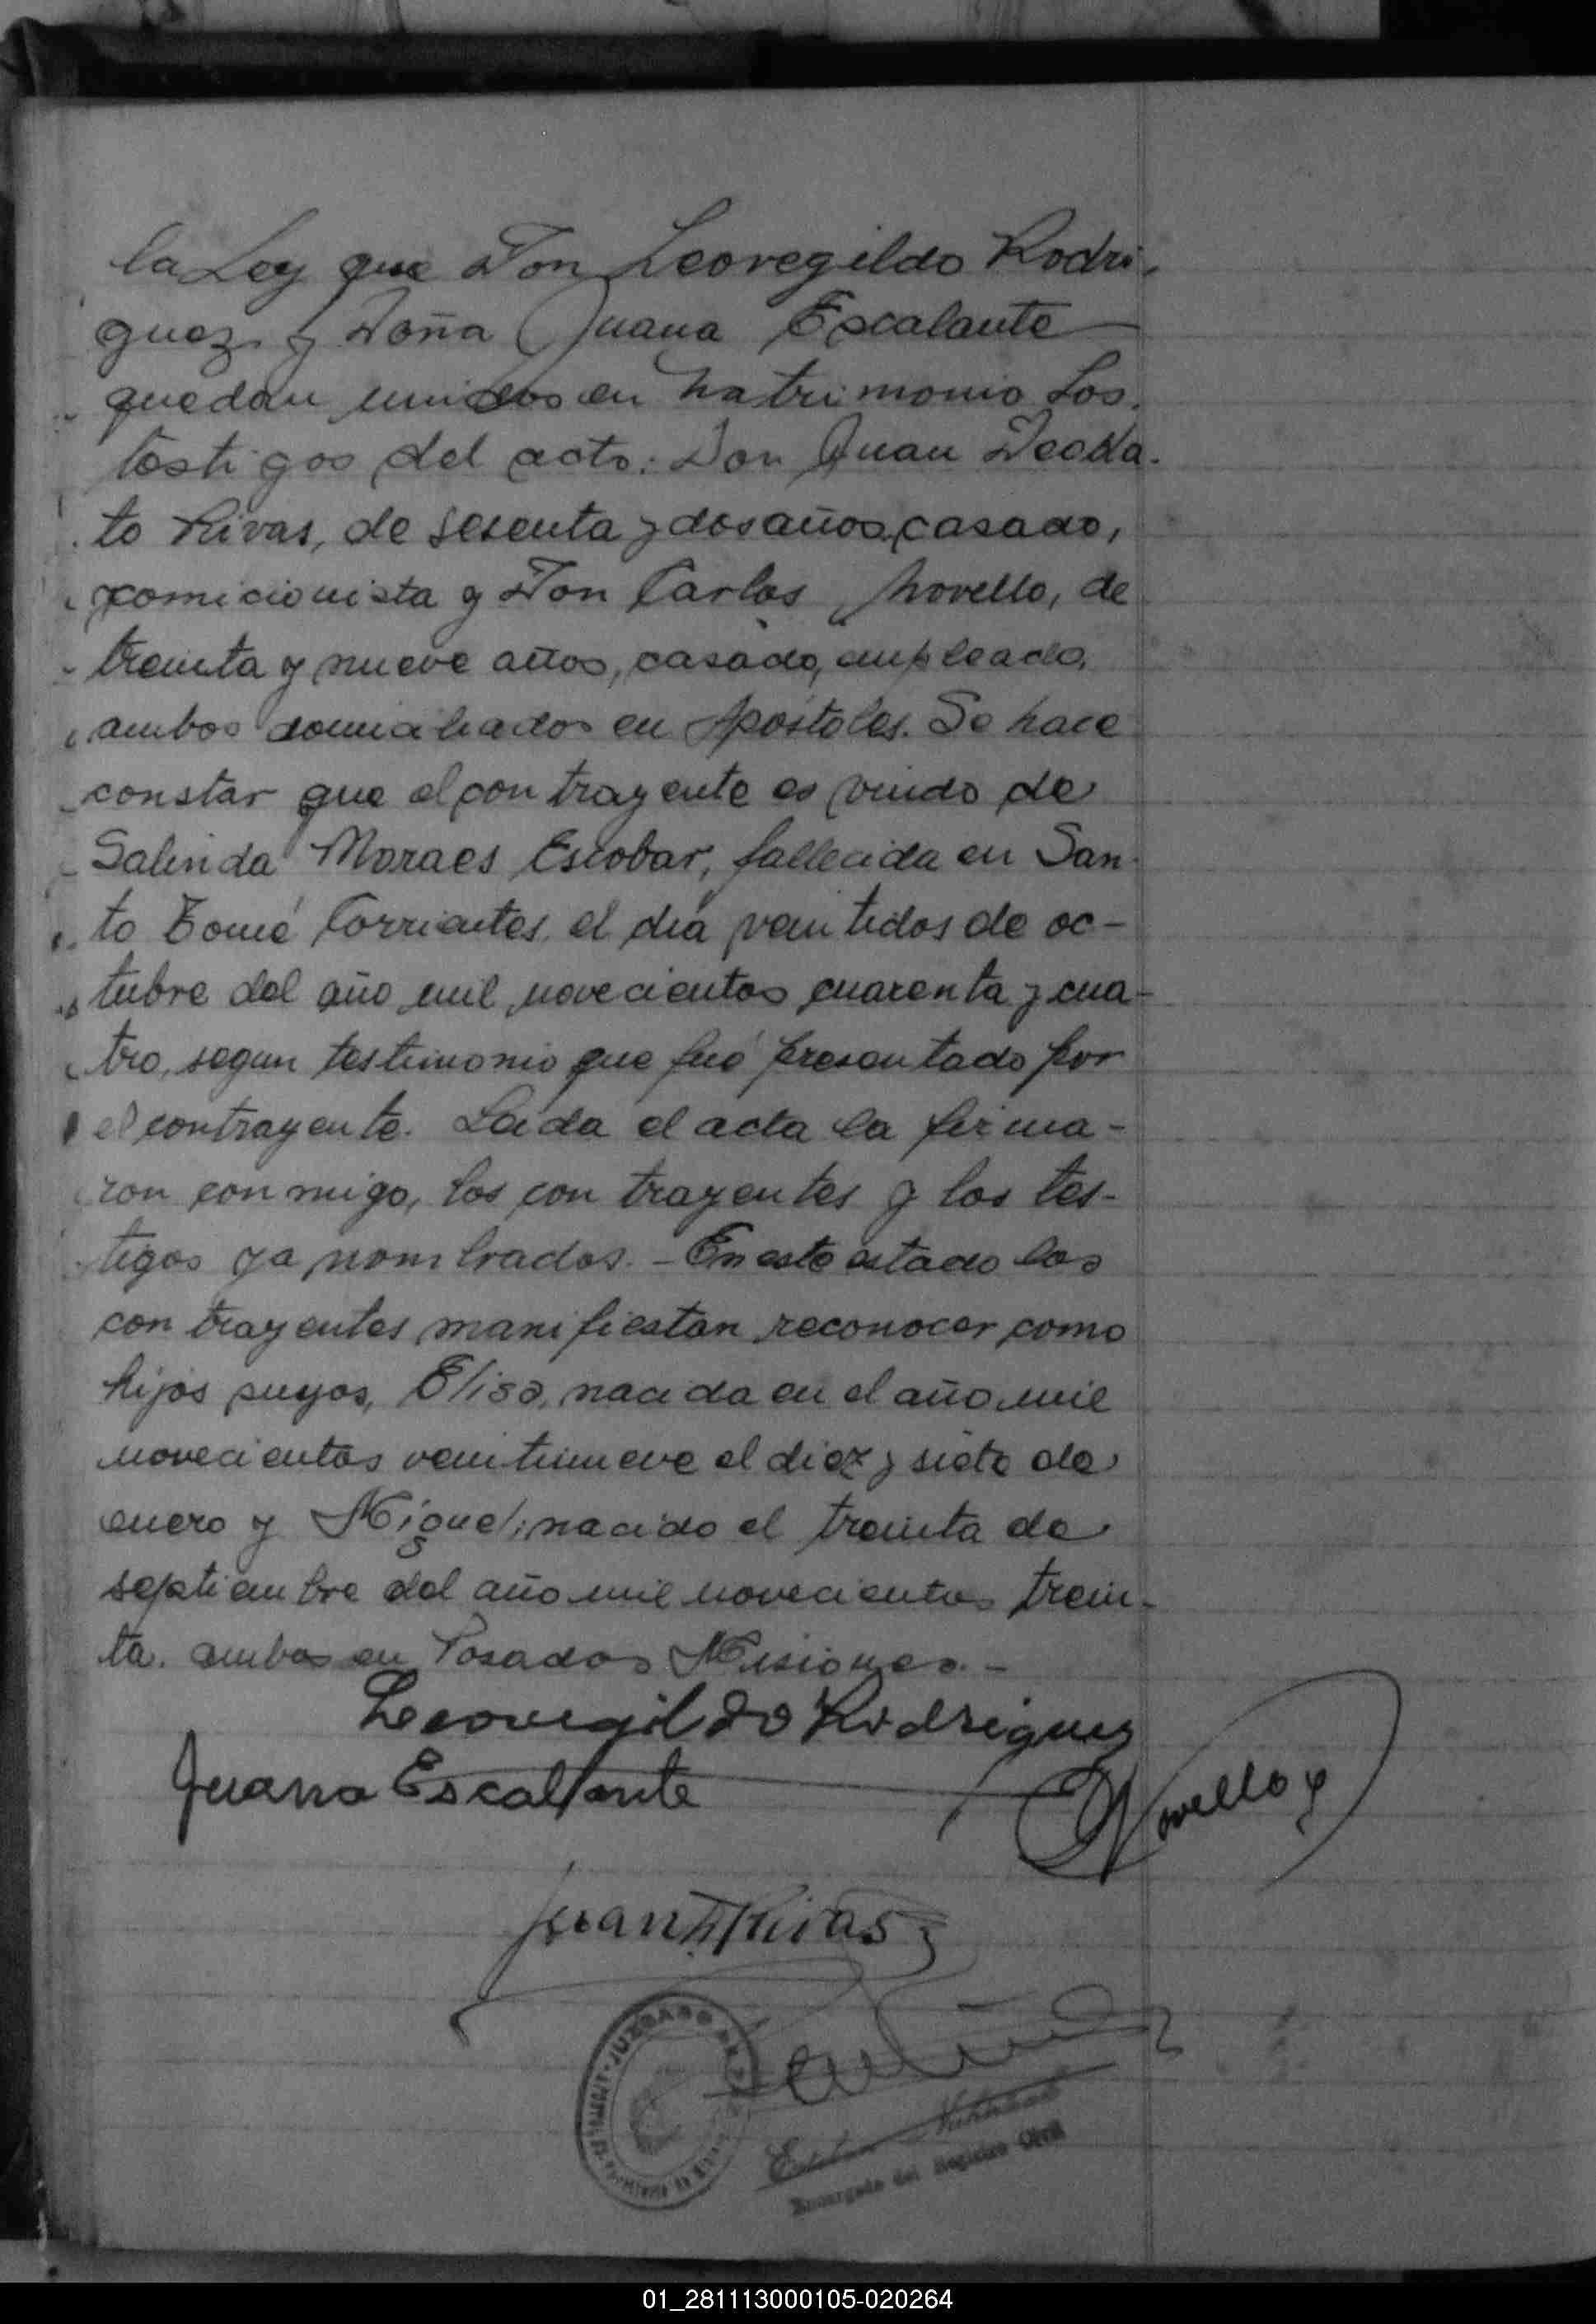 la Ley que Don Leovegildo Rodri-
guez y Doña Juana Escalante
quedan unidos en matrimonio Los
testigos del acto: Don Juan Deoda-
to Rivas, de sesenta y dos años, casado,
comicionista y Don Carlos Novello, de
treinta y nueve años, casado, empleado,
ambos domiciliados en Apóstoles. Se hace
constar que el contrayente es viudo de
Salinda Moraes Escobar, fallecida en San-
to Tomé Corrientes, el día veintidos de oc-
tubre del año mil novecientos cuarenta y cua-
tro, segun testimonio que fué presentado por
el contrayente. Leida el acta la firma-
ron conmigo, los contrayentes y los tes-
tigos ya nombrados. - En este estado los
contrayentes manifiestan reconocer como
hijos suyos, Elisa, nacida en el año mil
novecientos veintinueve el diez y siete de
enero y Miguel; nacido el treinta de
septiembre del año mil novecientos trein-
ta. ambos en Posadas Misiones. -
Leovegildo Rodriguez
Juana Escallante
Novello
Juan D Rivas
JUZGADO DE
Esteban
Encargado del Registro Civil
01_281113000105-020264